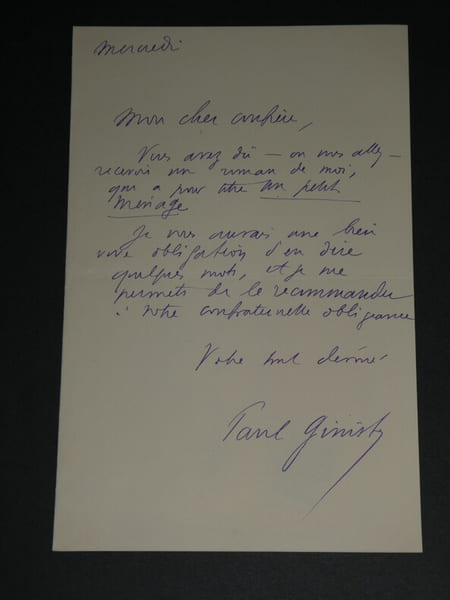 Mercredi
Mon cher confrère,
Vous avez dû — ou vous allez —
recevoir un roman de moi,
qui a pour titre Un petit
Ménage
Je vous aurais une bien
vive obligation d'en dire
quelques mots, et je me
permets de le recommander
à votre confraternelle obligeance
Votre tout dévoué
Paul Ginisty